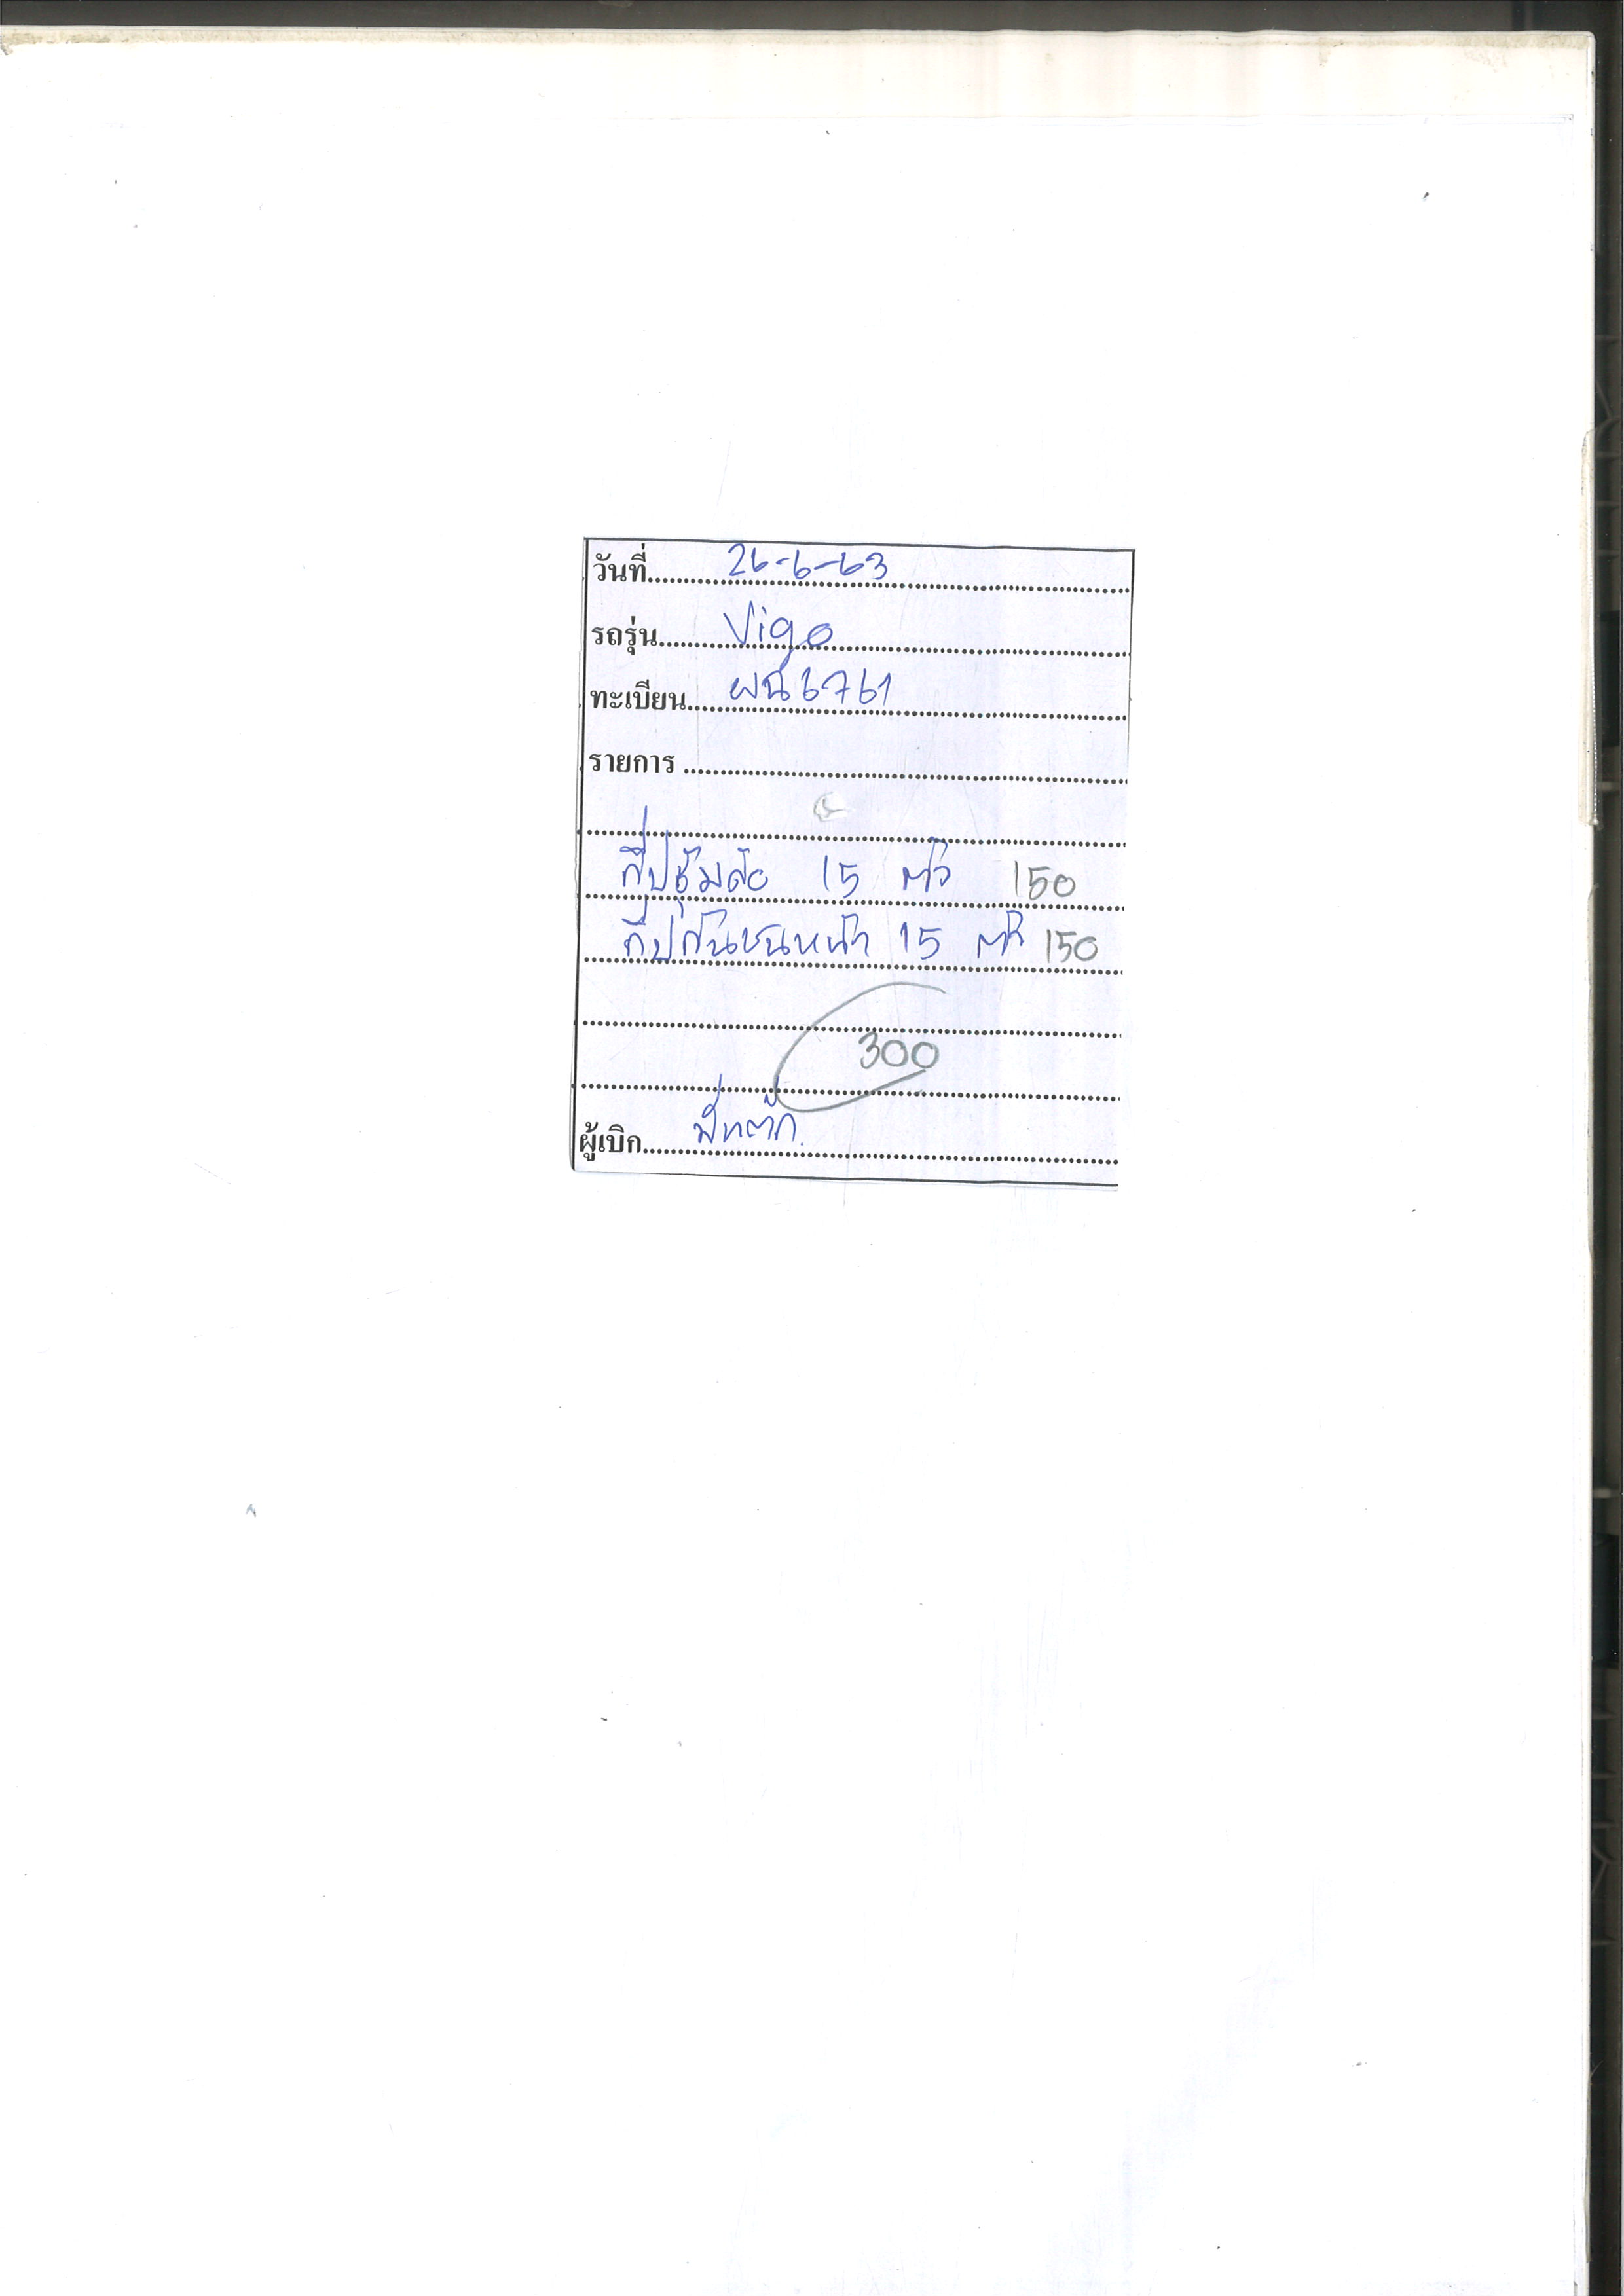 วันที่ 26-6-63
รถรุ่น Vigo
ทะเบียน ผฉ 6761
รายการ
กิ๊ปซุ้มล้อ 15 ตัว 150
กิ๊ปกันชนหน้า 15 ตัว 150
300
ผู้เบิก